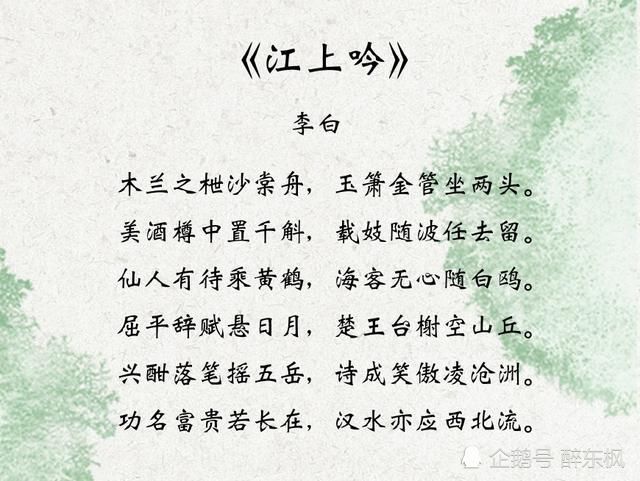 《江上吟》
李白
木兰之枻沙棠舟，玉箫金管坐两头。
美酒樽中置千斛，载妓随波任去留。
仙人有待乘黄鹤，海客无心随白鸥。
屈平辞赋悬日月，楚王台榭空山丘。
兴酣落笔摇五岳，诗成笑傲凌沧洲。
功名富贵若长在，汉水亦应西北流。
企鹅号 醉东枫